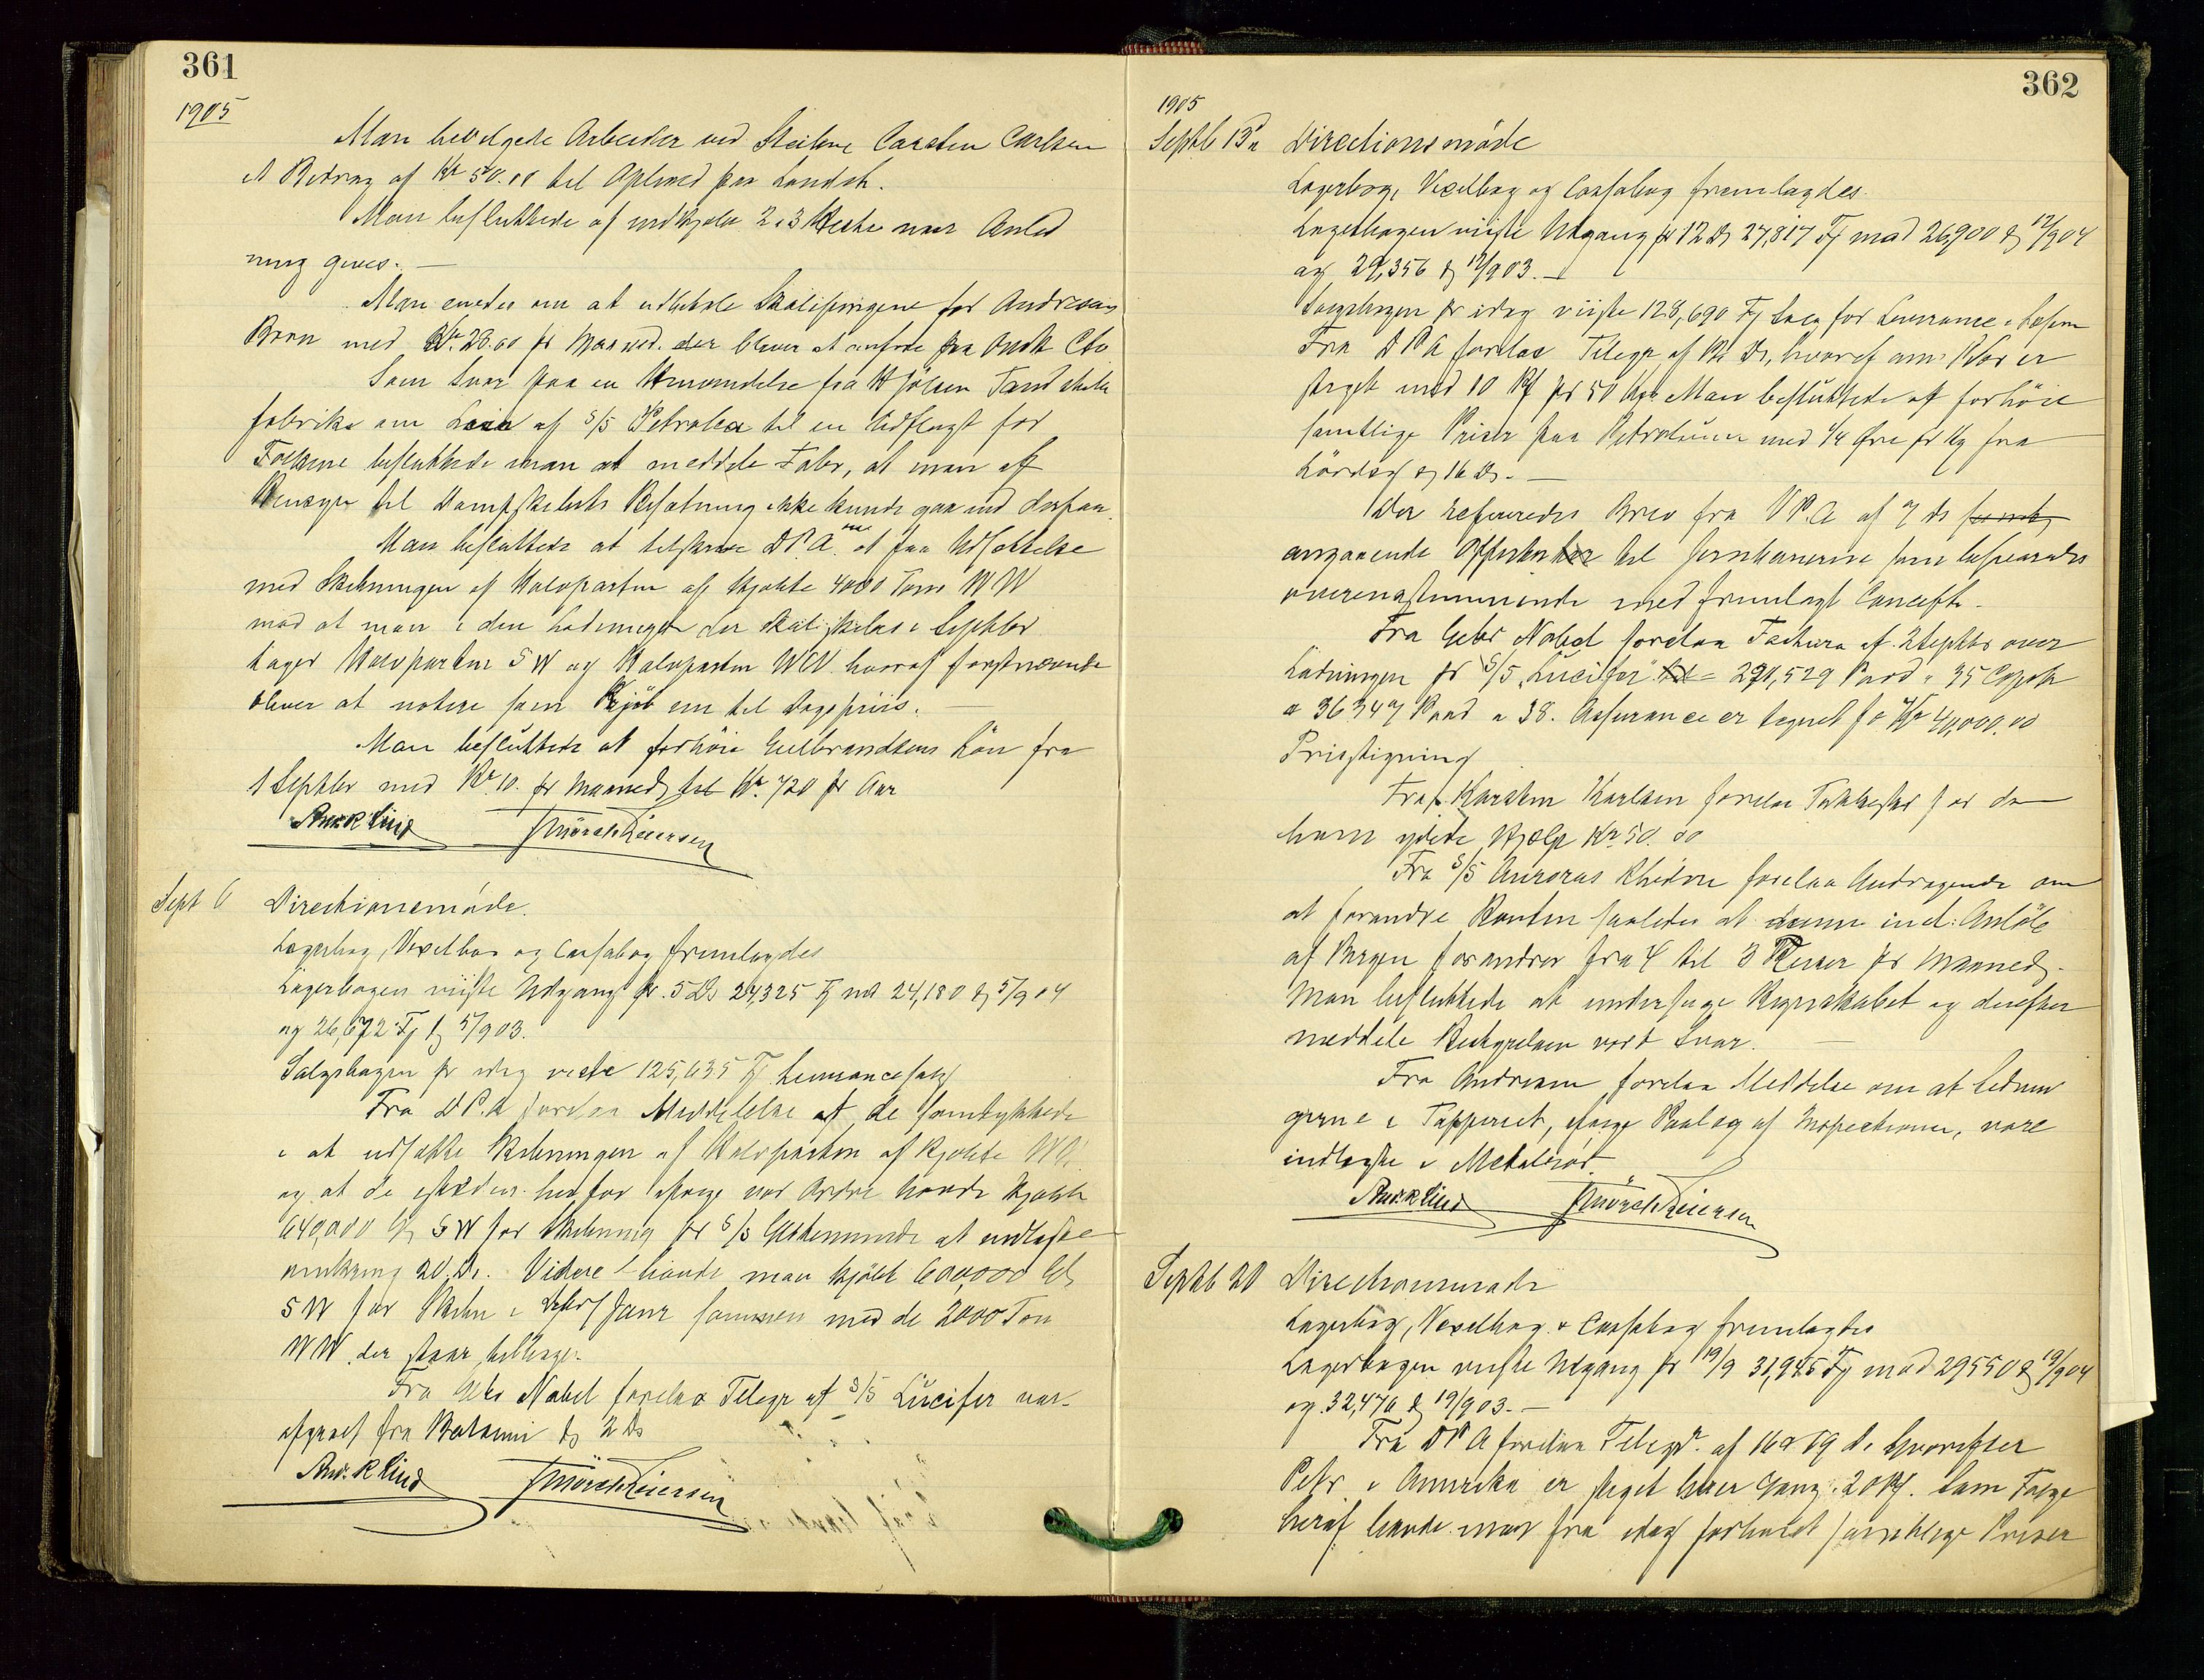 361
1905
Man bevilgede Arbeider ved Steilene Carsten Carlsen
et Bidrag af Kr 50.00 til Ophold paa Landst.
Man besluttede at indkjøbe 2 à 3 Heste naar Anled
ning gives. —
Man enedes om at udbetale Skolepengene for Andresens
Børn med Kr. 28.00 pr Maaned. der bliver at anføre paa
Som Svar paa en Henvendelse fra Tændstik
fabrik om Leie af S/S Petrolea til en Udflugt for
Folkene besluttede man at meddele Fabr, at man af
Hensyn til Dampskibets Befatning ikke kunde gaa ind derpaa
Man besluttede at tilskrive D.P.A. om at faa Udsættelse
med Skibningen af Halvparten af kjøbte 4000 Tons WW
mod at man i den Ladningen der skal skibes i Septbr
tager Halvparten SW og Halvparten WW hvoraf førstnævnte
bliver at notere som Kjøb em til Dagspriis.
Man besluttede at forhöie Gulbrandsens Lön fra
1 Septbr med Kr. 10. pr Maaned til Kr. 720 pr Aar
Sept 6 Directionsmöde.
Lagerbog, Vexelbog og Cassabog fremlagdes
Lagerbogen viiste Udgang pr. 5 Ds 24,325 Fj mod 24,180 d 5/904
og 26,672 Fj d 5/903.
Salgsbogen pr idag viste 125,635 Fj Leverancesalg
Fra D.P.A forelaa Meddelelse at de samtykkede
i at udsætte Skibningen af Halvparten af kjøbte WW
og at de istæden herfor ifølge vor Ordre havde kjøbt
640,000 SW for Skibning pr S/S Geestemünde at indlaste
omkring 20 Ds. Videre havde man kjöbt 600,000
SW for Skibn i Janr sammen med de 2000 Ton
WW der staar tilbage.
Fra Gebr Nobel forelaa Telegr at S/S Lucifer var
afgaaet fra Batoum d 2 Ds
362
1905
Septb 13 Directionsmöde
Lagerbog, Vexelbog og Cassabog fremlagdes.
Lagerbogen viiste Udgang pr 12 Ds 27,817 Fj mod 26,900 d 12/904
og 29,356 d 12/903. —
Salgsbogen pr idag viiste 128,690 Fj Salg for Leverance
Fra D P A forelaa Telegr af Ds, hvoraf am: Petr er
steget med 10 Pf pr 50 Kgr Man besluttede at forhöie
samtlige Priser paa Petroleum med 1/4 Øre pr Kg fra
Lördag d 16 Ds. —
Der refereredes Brev fra D.P.A af 7 ds
angaaende til Jernkanerne som besvaredes
overensstemmende med fremlagt Concept.
Fra Gebr Nobel forelaa Factura af 2 Septbr over
Ladningen pr S/S „Lucifer" = 271,529 Pood à 35 Copek
36347 Pood à 38. Assurance er tegnet fo Kr 40,000.00
Prisstigning
Fra Karsten Karlsen forelaa Takkebrev for den
ham ydede Hjælp Kr. 50.00
Fra S/S Auroras Rhedere forelaa Andragende om
at forandre Routen saaledes at denne incl: Anløb
af Bergen forandres fra 4 til 3 Reiser pr Maaned.
Man besluttede at undersøge Regnskabet og derefter
meddele Bestyrelsen vort Svar.
Fra Andresen forelaa Meddelse om at Lednin
gerne i Tapperiet, ifølge Paalæg af Inspectionen, vare
indlagte i Metalrör.
Septb 20 Directionsmøde
Lagerbog, Vexelbog & Cassabog fremlagdes
Lagerbogen viiste Udgang pr 19/9 31,945 Fj mod 29550 d 19/904
og 32,476 d 19/903. —
Fra DPA forelaa Telegr. af 16 & 19 ds hvorefter
Petr. i Amerika er steget hver Gang 20 Pf. Som Følge
heraf havde man fra idag forhøiet samtlige Priser